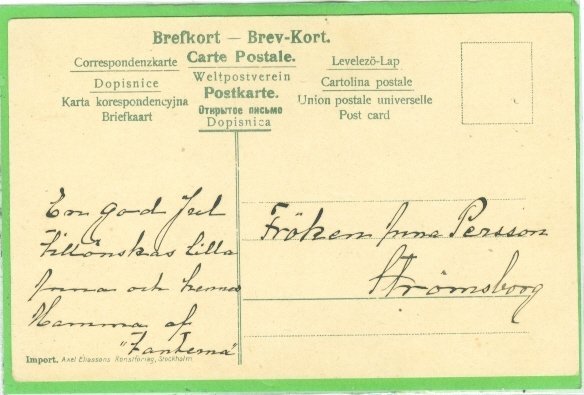 Brefkort — Brev-Kort.
Carte Postale.
Correspondenzkarte
Weltpostverein
Levelező-Lap
Dopisnice
Postkarte.
Cartolina postale
Karta korespondencyjna
Открытое письмо
Union postale universelle
Briefkaart
Dopisnica
Post card
En god Jul
tillönskas lilla
Inna och hennes
Mamma af
"Tanterna"
Fröken Inna Persson
Strömsborg
Import. Axel Eliassons Konstförlag, Stockholm.